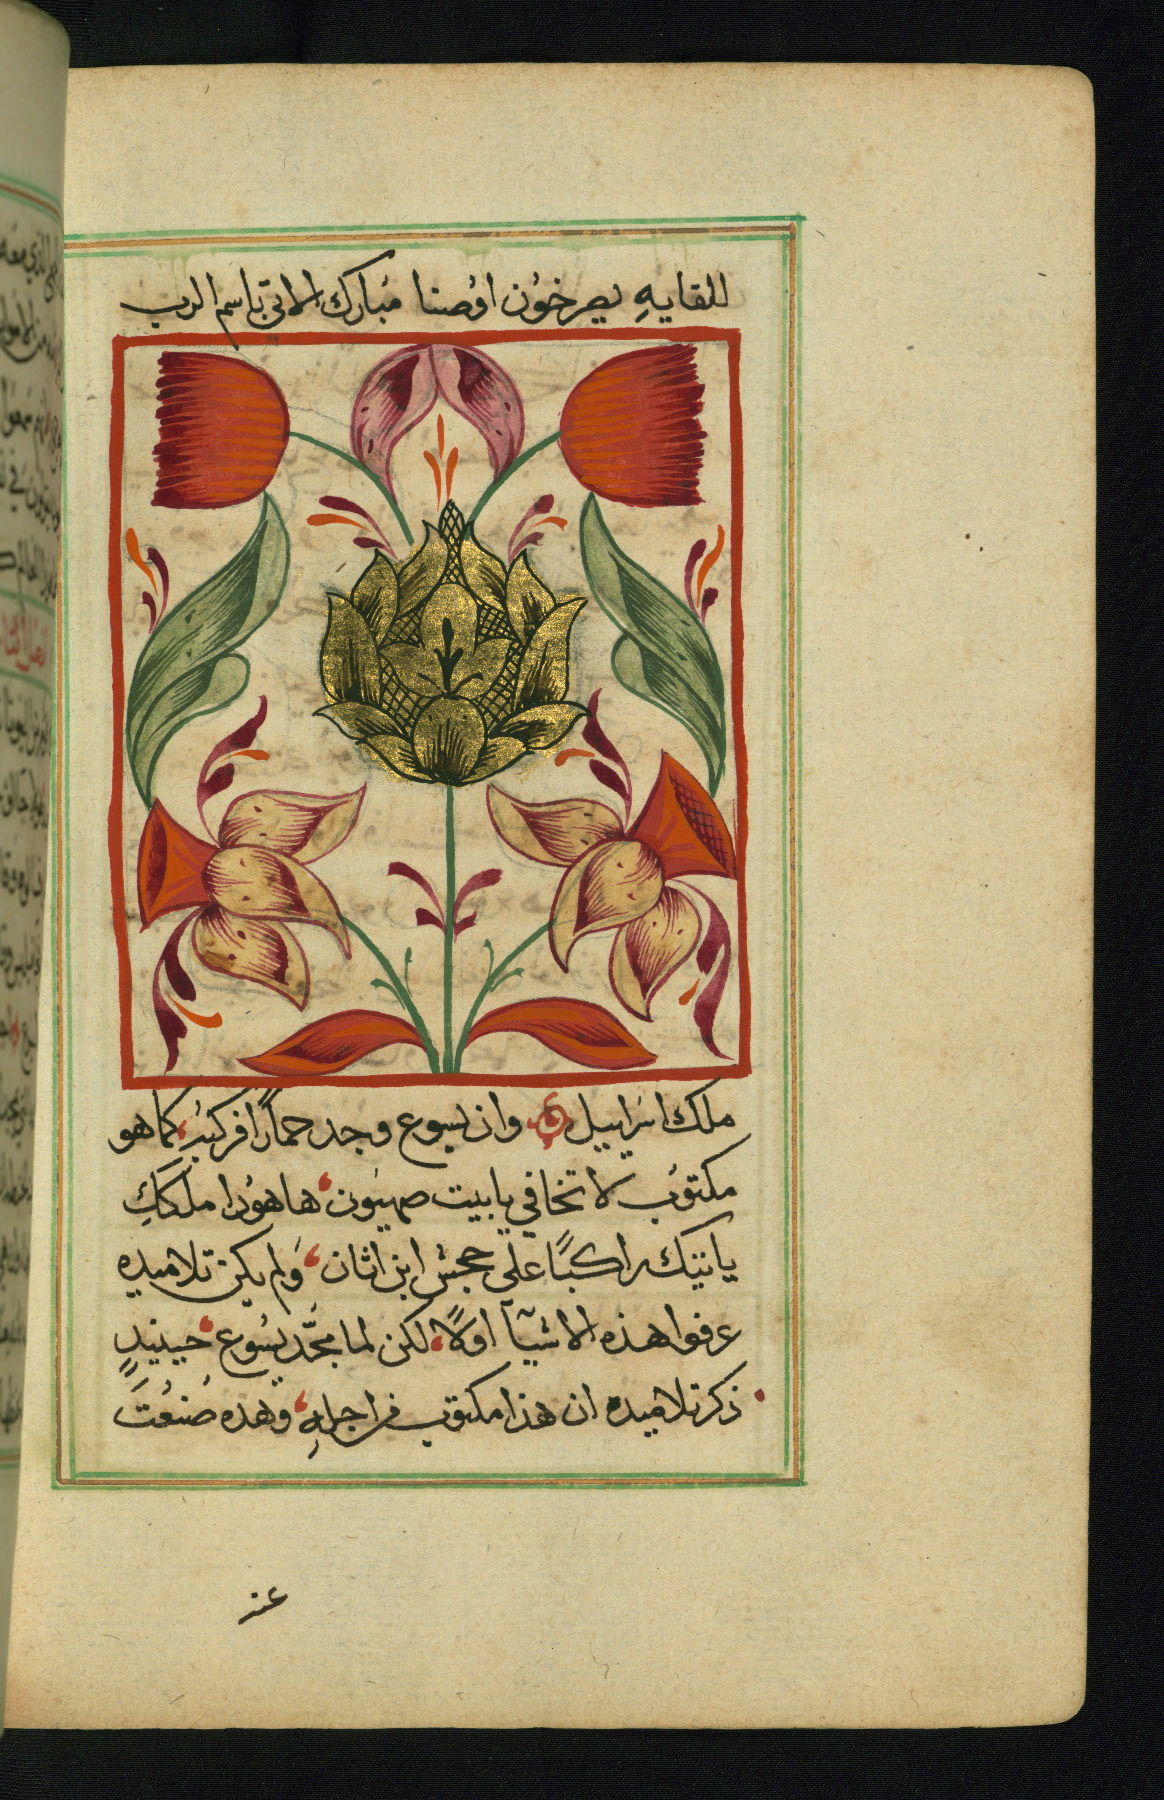 للقايهِ يصرخوُن اوُصنا مُبارك الاتي باسم الرب
ملك اسَراييل وان يسوع وجد حمارًا فركبَه كما هو
مكتوُب لا تخافي يا بيت صهيَون هاهوُذا ملككِ
ياتيك راكبًا على جحش ابن اتان وَلم يكن تلاميده
عرفوا هذه الاشيآ اولاً لكن لما مجَّد يسُوع حينيدٍ
ذكر تلاميده ان هذا مكتوب من اجلهِ وهده صُنعُتَ
عند